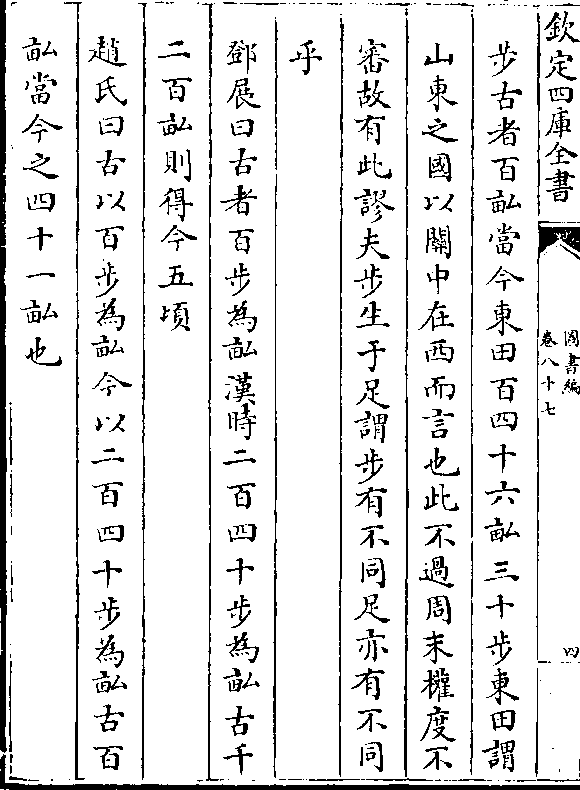 欽定四庫全書
圖書編
卷八十七
四
步古者百畝當今東田百四十六畝三十步東田謂
山東之國以關中在西而言也此不過周末權度不
審故有此謬夫步生于足謂步有不同足亦有不同
乎
鄧展曰古者百步為畝漢時二百四十步為畝古千
二百畝則得今五頃
趙氏曰古以百步為畝今以二百四十步為畝古百
畝當今之四十一畝也